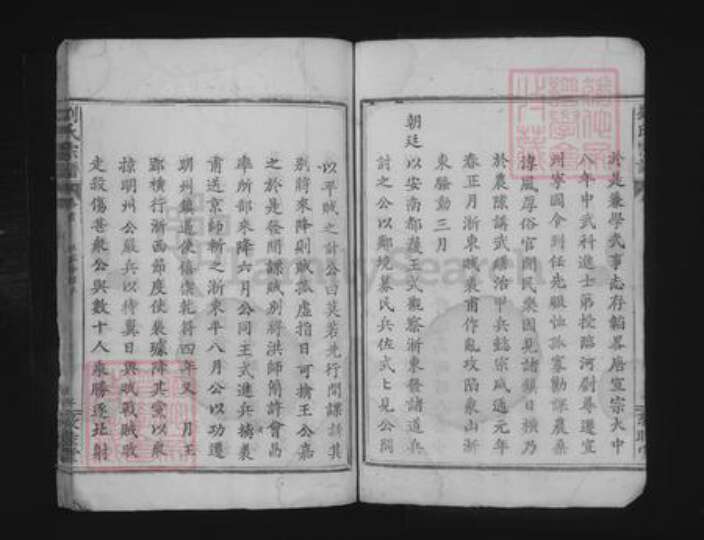 於是兼學武事志存韜畧唐宣宗大中
八年中武科進士第授臨河尉尋遷宣
州寧國令到任先賑恤孤寡勸課農桑
摶風厚俗官閒民樂因見諸鎮日橫乃
於農隙講武繕治甲兵懿宗咸通元年
春正月浙東賊裘甫作亂攻陷象山浙
東騷動三月
朝廷以安南都護王式觀察浙東發諸道兵
討之公以鄰境募民兵佐武上見公問
以平賊之計公曰莫若先行間諜誘其
別將來降則賊孤虛指日可擒王公嘉
之於是發間諜賊別將洪師簡許會昌
率所部來降六月公同王式進兵擒裘
甫送京師斬之浙東平八月公以功遷
明州鎮遏使僖宗乾符四年又 月王
郢橫行浙西節度使裴璩降其黨以衆
掠明州公嚴兵以待翼日與賊戰賊敗
走殺傷甚衆公與數十人乘勝逐北射
劉氏宗譜
FamilySearch